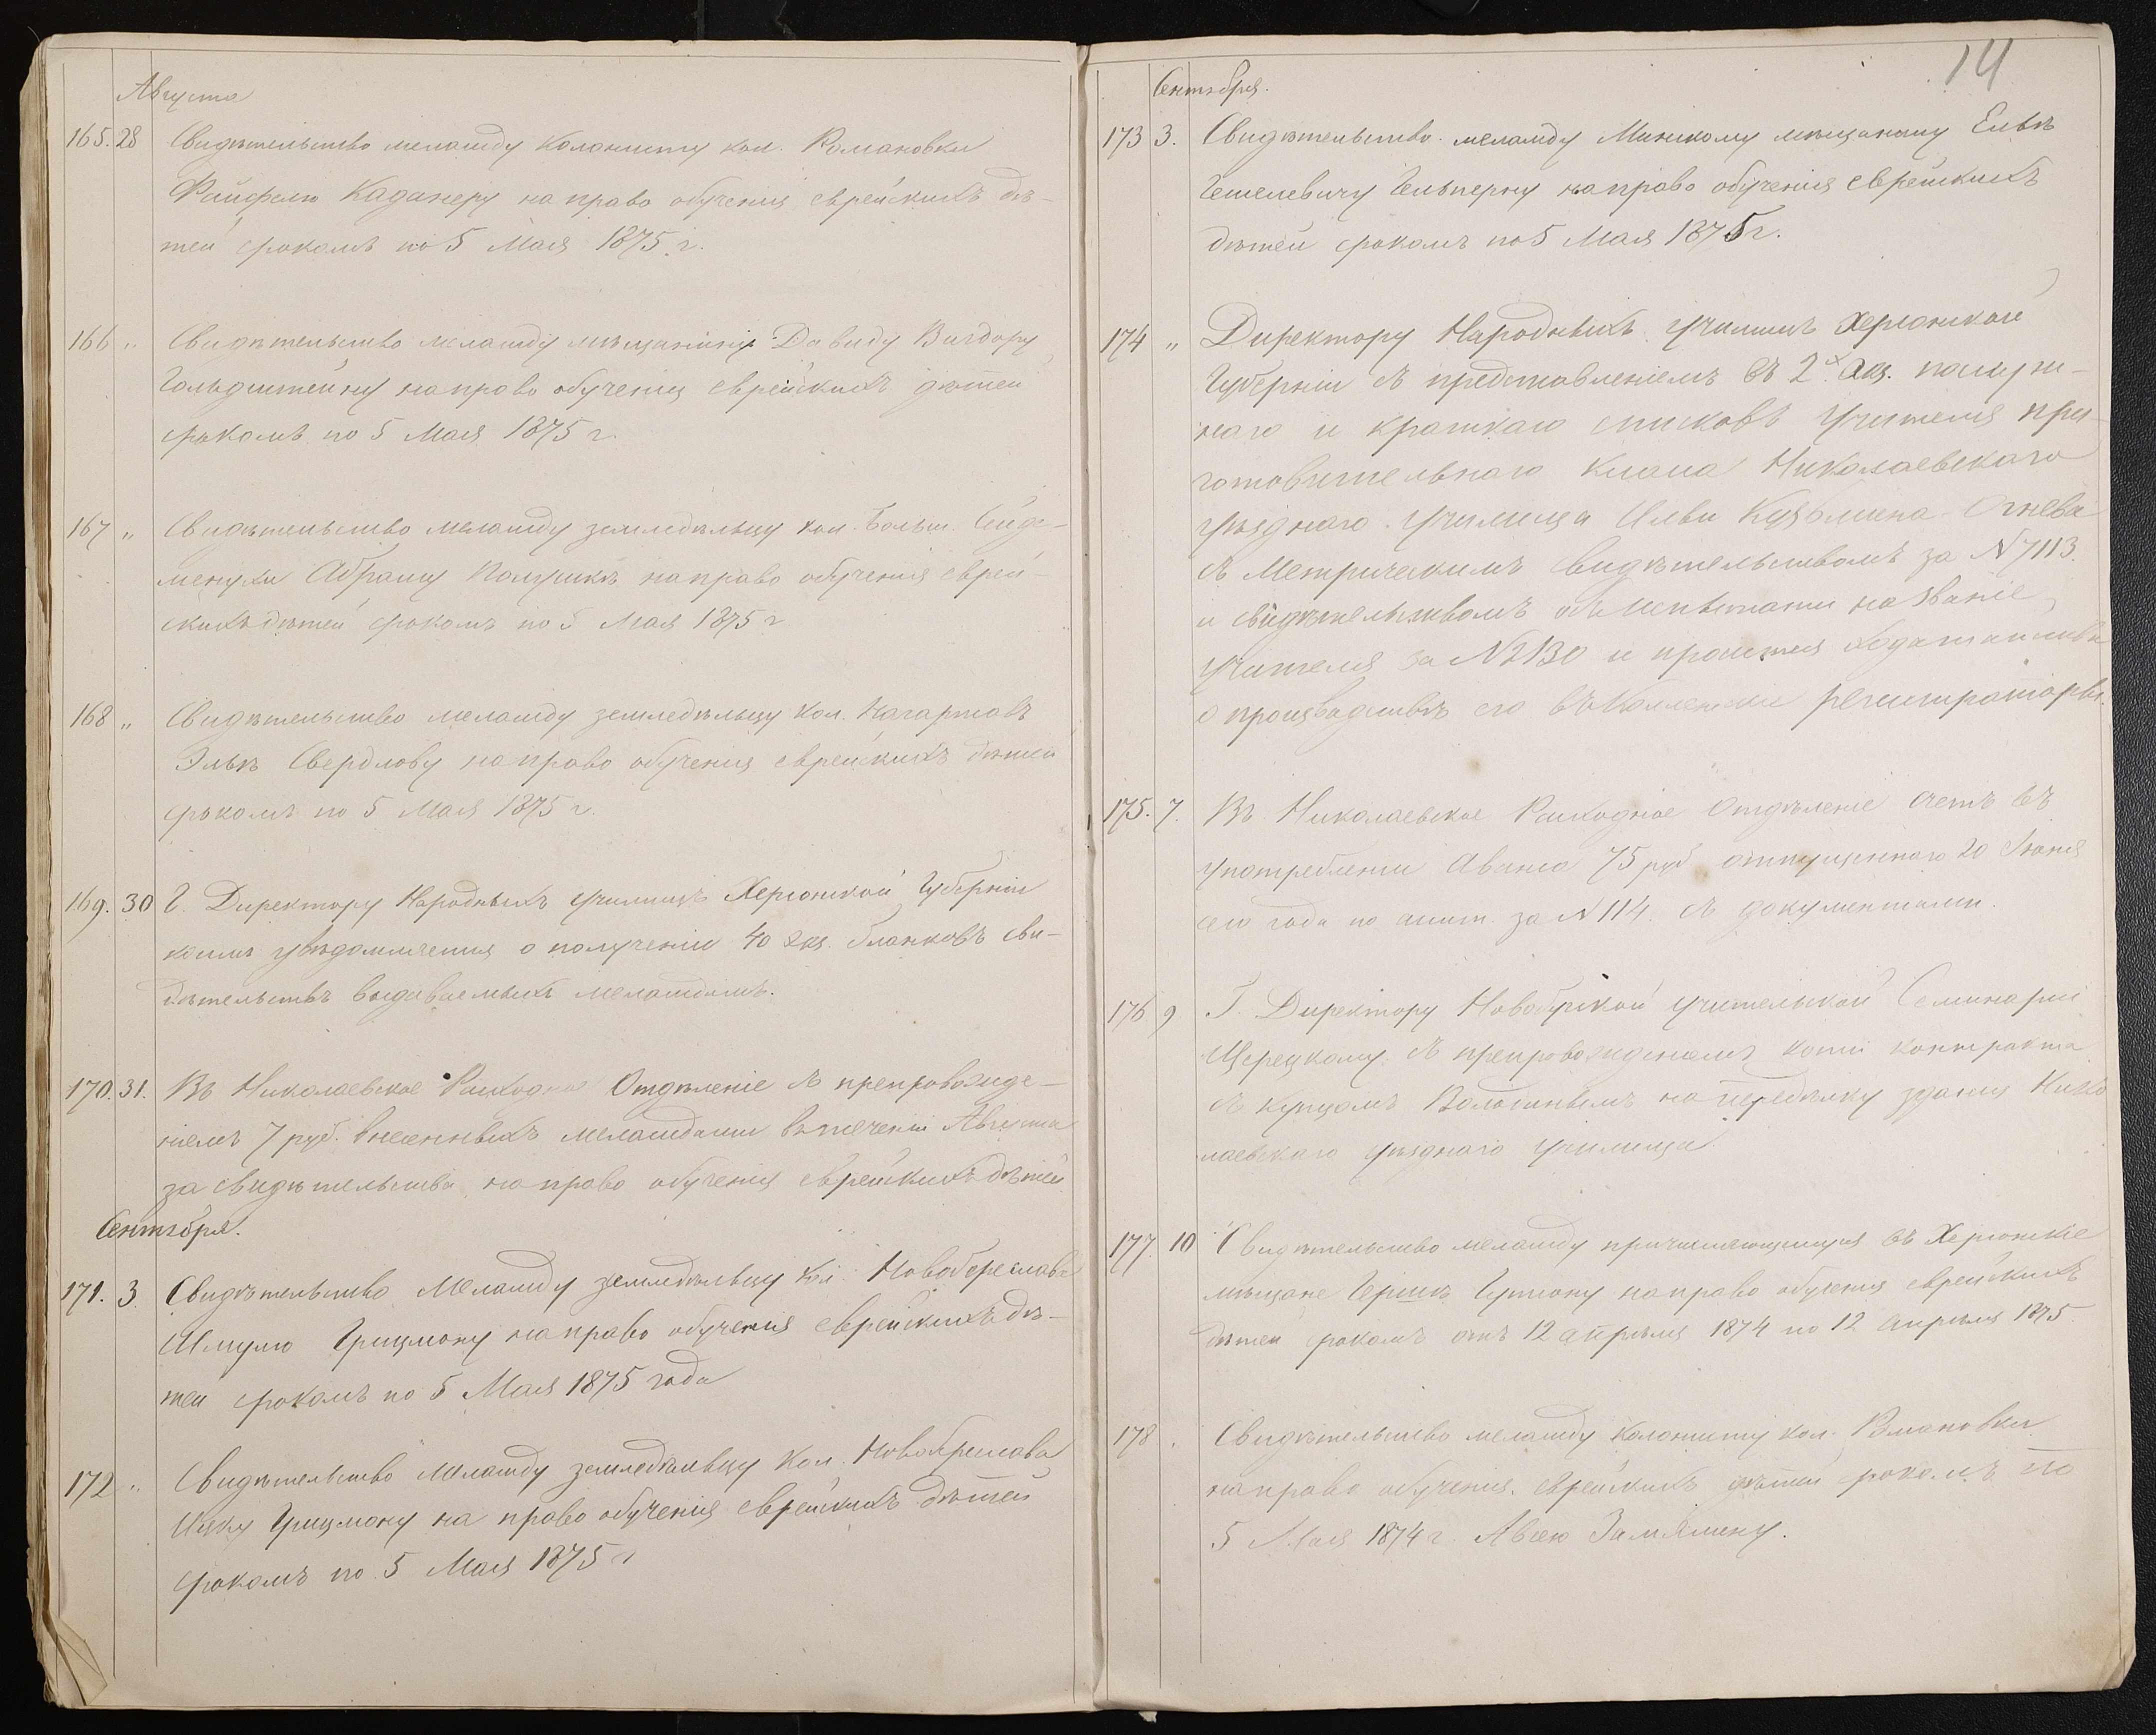 Августа
165. 28 Свидѣтельство меламду колонисту кол. Романовки
Файфелю Кадинеру на право обученія еврейскихъ дѣ-
тей срокомъ по 5 Мая 1875 г.
166 „ Свидѣтельство меламду мѣщанину Давиду Вигдору
Гольдштейну на право обученія еврейскихъ дѣтей
срокомъ по 5 Мая 1875 г.
167 „ Свидѣтельство меламду земледѣльцу кол. Больш. Сейде-
менухи Абраму на право обученія еврей-
скихъ дѣтей срокомъ по 5 Мая 1875 г
168 „ Свидѣтельство меламду земледѣльцу кол. Нагартавъ
Элькѣ Свердлову на право обученія еврейскихъ дѣтей
срокомъ по 5 Мая 1875 г.
169. 30 Г. Директору Народныхъ училищъ Херсонской Губерніи
коимъ увѣдомляется о полученіи 40 экз. бланковъ сви-
дѣтельствъ выдаваемыхъ меламдамъ.
170. 31. Въ Николаевское Расходное Отдѣленіе съ препровожде-
ніемъ 7 руб. внесенныхъ меламдами въ теченіи Августа
за свидѣтельства на право обученія еврейскихъ дѣтей
Сентября.
171. 3. Свидѣтельство Меламду земледѣльцу кол. Новобереслава
Шмулю Грицману на право обученія еврейскихъ дѣ-
тей срокомъ по 5 Мая 1875 года
172 „ Свидѣтельство Меламду земледѣльцу кол. Новобреслава
Ицку Грицману на право обученія еврейскихъ дѣтей
срокомъ по 5 Мая 1875 г
14
Сентября.
173 3. Свидѣтельство меламду Минскому мѣщанину Елькѣ
Гешелевичу Гельперну на право обученія еврейскихъ
дѣтей срокомъ по 5 Мая 1875 г.
174 „ Директору Народныхъ училищъ Херсонской
Губерніи съ представленіемъ въ 2х экз.
наго и краткаго списковъ Учителя при-
готовительнаго класса Николаевскаго
уѣзднаго училища Ильи Кузьмина Огнева
съ Метрическимъ свидѣтельствомъ за N 7113.
и свидѣтельствомъ объ испытаніи на званіе
учителя за N 2130 и просится ходатайства
о производствѣ его въ Коллежскіе регистраторы.
175. 7. Въ Николаевское Расходное Отдѣленіе счетъ въ
употребленіи аванса 75 руб отпущеннаго 20 Іюня
сего года по ассиг. за N 114. съ документами.
176 9 Г. Директору Новобугской учительской Семинаріи
съ препровожденіемъ копіи контракта
съ купцомъ на передѣлку зданія Нико
лаевскаго уѣзднаго училища
177. 10 Свидѣтельство меламду причисляющемуся въ Херсонскіе
мѣщане Гершкѣ на право обученія еврейскихъ
дѣтей срокомъ отъ 12 апрѣля 1874 по 12 апрѣля 1875.
178 . Свидѣтельство меламду колонисту кол. Романовки
на право обученія еврейскихъ дѣтей срокомъ по
5 Мая 1874 г. Авсею Замлянину.